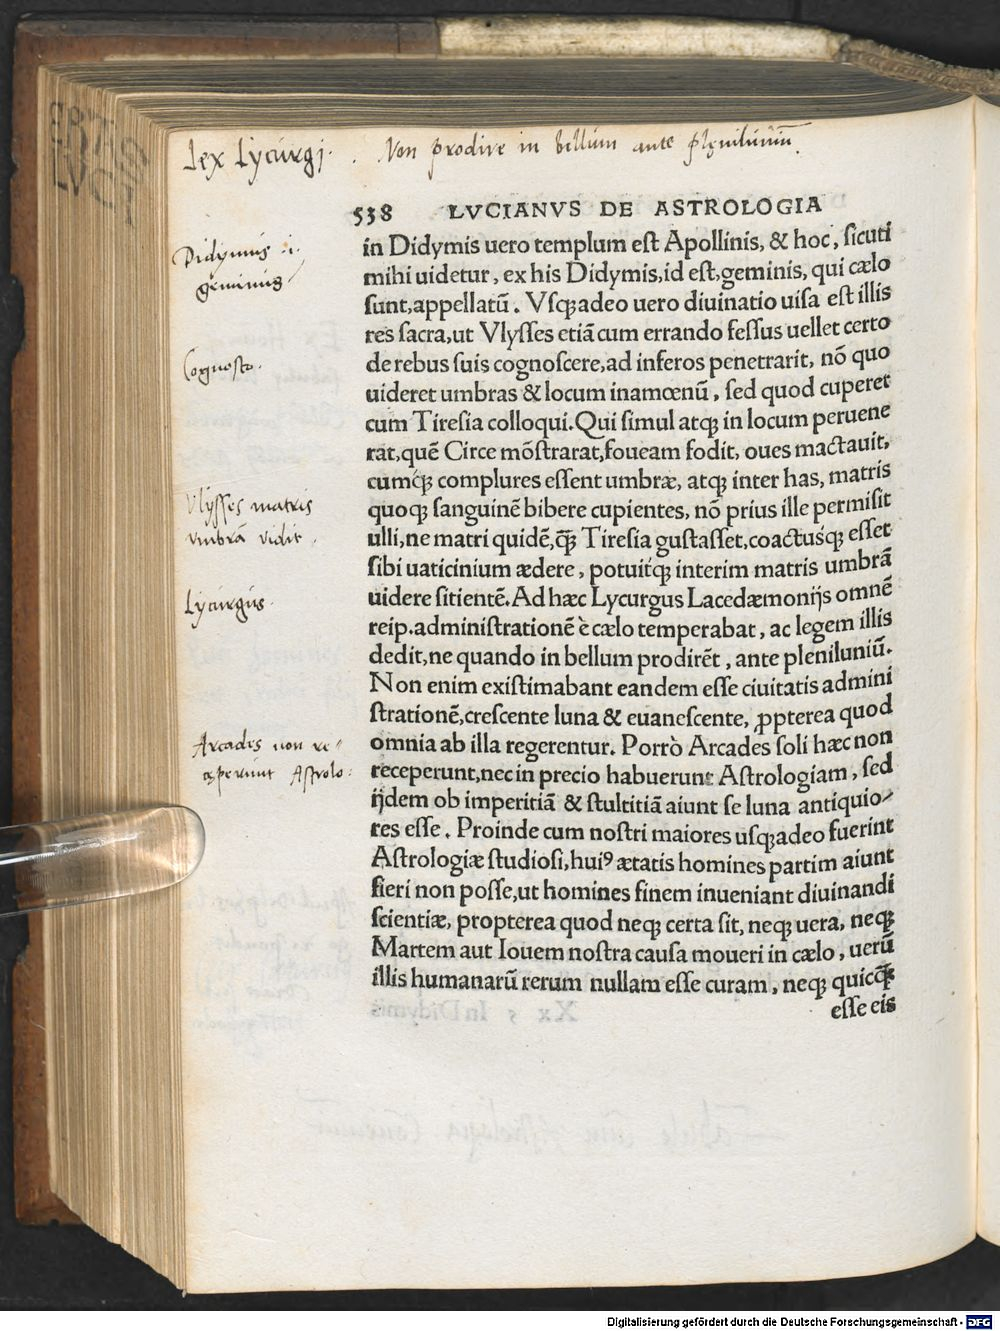 Lex Lycurgj. Non prodire in bellum ante plęniluniũ.
538 LVCIANVS DE ASTROLOGIA
Didymus .i.
geminus
in Didymis uero templum eſt Apollinis, & hoc, ſicuti
mihi uidetur, ex his Didymis, id eſt, geminis, qui cælo
ſunt, appellatũ. Vſqꝫadeo uero diuinatio uiſa eſt illis
res ſacra, ut Vlyſſes etiã cum errando feſſus uellet certo
Cognoſco.
de rebus ſuis cognoſcere, ad inferos penetrarit, nõ quo
uideret umbras & locum inamœnũ, ſed quod cuperet
cum Tireſia colloqui. Qui ſimul atqꝫ in locum peruene
rat, quẽ Circe mõſtrarat, foueam fodit, oues mactauit,
cumqꝫ complures eſſent umbræ, atqꝫ inter has, matris
Vlyſſes matris
vmbrã vidit.
quoqꝫ ſanguinẽ bibere cupientes, nõ prius ille permiſit
ulli, ne matri quidẽ, q̃ꝫ Tireſia guſtaſſet, coactuſqꝫ eſſet
ſibi uaticinium ædere, potuitqꝫ interim matris umbrã
Lycurgus.
uidere ſitientẽ. Ad hæc Lycurgus Lacedæmonijs omnẽ
reip. adminiſtrationẽ è cælo temperabat, ac legem illis
dedit, ne quando in bellum prodirẽt, ante pleniluniũ.
Non enim exiſtimabant eandem eſſe ciuitatis admini
ſtrationẽ, creſcente luna & euaneſcente, ꝓpterea quod
Arcades non re-
ceperunt Aſtrolo:
omnia ab illa regerentur. Porrò Arcades ſoli hæc non
receperunt, nec in precio habuerunt Aſtrologiam, ſed
ijdem ob imperitiã & ſtultitiã aiunt ſe luna antiquio-
res eſſe. Proinde cum noſtri maiores uſqꝫadeo fuerint
Aſtrologiæ ſtudioſi, huiꝰ ætatis homines partim aiunt
fieri non poſſe, ut homines finem inueniant diuinandi
ſcientiæ, propterea quod neqꝫ certa ſit, neqꝫ uera, neqꝫ
Martem aut Iouem noſtra cauſa moueri in cælo, uerũ
illis humanarũ rerum nullam eſſe curam, neqꝫ quicq̃ꝫ
eſſe eis
Digitalisierung gefördert durch die Deutsche Forschungsgemeinschaft - DFG